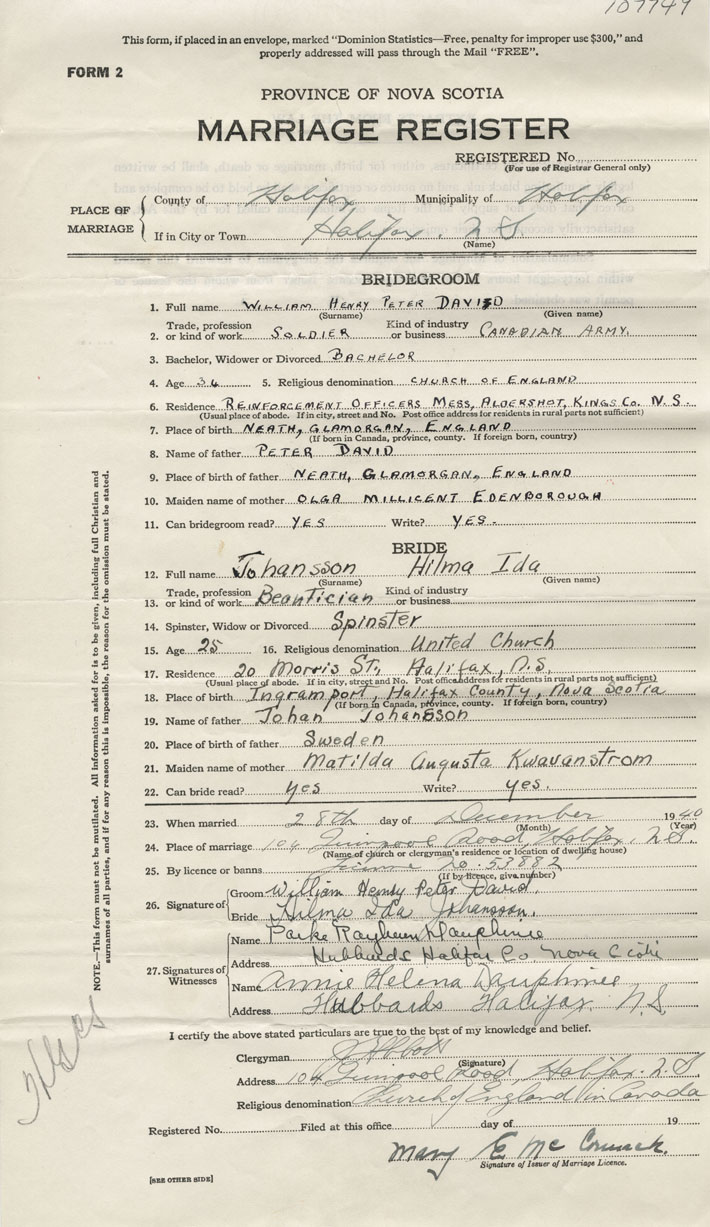 107749
This form, if placed in an envelope, marked "Dominion Statistics—Free, penalty for improper use $300," and
properly addressed will pass through the Mail "FREE".
FORM 2
PROVINCE OF NOVA SCOTIA
MARRIAGE REGISTER
REGISTERED No.
(For use of Registrar General only)
PLACE OF MARRIAGE
County of Halifax Municipality of Halifax
If in City or Town Halifax. N.S.
(Name)
BRIDEGROOM
1. Full name WILLIAM HENRY PETER DAVID
(Surname) (Given name)
2. Trade, profession or kind of work SOLDIER Kind of industry or business CANADIAN ARMY.
3. Bachelor, Widower or Divorced BACHELOR
4. Age 36 5. Religious denomination CHURCH OF ENGLAND
6. Residence REINFORCEMENT OFFICERS MESS, ALDERSHOT, KINGS CO. N.S.
(Usual place of abode. If in city, street and No. Post office address for residents in rural parts not sufficient)
7. Place of birth NEATH, GLAMORGAN, ENGLAND
(If born in Canada, province, county. If foreign born, country)
8. Name of father PETER DAVID
9. Place of birth of father NEATH, GLAMORGAN, ENGLAND
10. Maiden name of mother OLGA MILLICENT EDENBOROUGH
11. Can bridegroom read? YES Write? YES.
BRIDE
12. Full name Johansson Hilma Ida
(Surname) (Given name)
13. Trade, profession or kind of work Beautician Kind of industry or business
14. Spinster, Widow or Divorced Spinster
15. Age 25 16. Religious denomination United Church
17. Residence 20 Morris St., Halifax, N.S.
(Usual place of abode. If in city, street and No. Post office address for residents in rural parts not sufficient)
18. Place of birth Ingramport, Halifax County, Nova Scotia
(If born in Canada, province, county. If foreign born, country)
19. Name of father Johan Johansson
20. Place of birth of father Sweden
21. Maiden name of mother Matilda Augusta Kwavanstrom
22. Can bride read? yes Write? yes.
23. When married 28th day of December 1940
(Month) (Year)
24. Place of marriage 104 Quinpool Road, Halifax, N.S.
(Name of church or clergyman's residence or location of dwelling house)
25. By licence or banns No. 53882
(If by licence, give number)
26. Signature of
Groom William Henry Peter David.
Bride Hilma Ida Johansson.
27. Signatures of Witnesses
Name Parke Dauphinee
Address Hubbards Halifax Co Nova Scotia
Name Annie Helena Dauphinee
Address Hubbards Halifax. N.S.
I certify the above stated particulars are true to the best of my knowledge and belief.
Clergyman
(Signature)
Address 104 Quinpool Road, Halifax. N.S.
Religious denomination Church of England in Canada
Registered No. Filed at this office day of 19
Mary E McCormack.
Signature of Issuer of Marriage Licence.
[SEE OTHER SIDE]
NOTE.—This form must not be mutilated. All information asked for is to be given, including full Christian and
surnames of all parties, and if for any reason this is impossible, the reason for the omission must be stated.